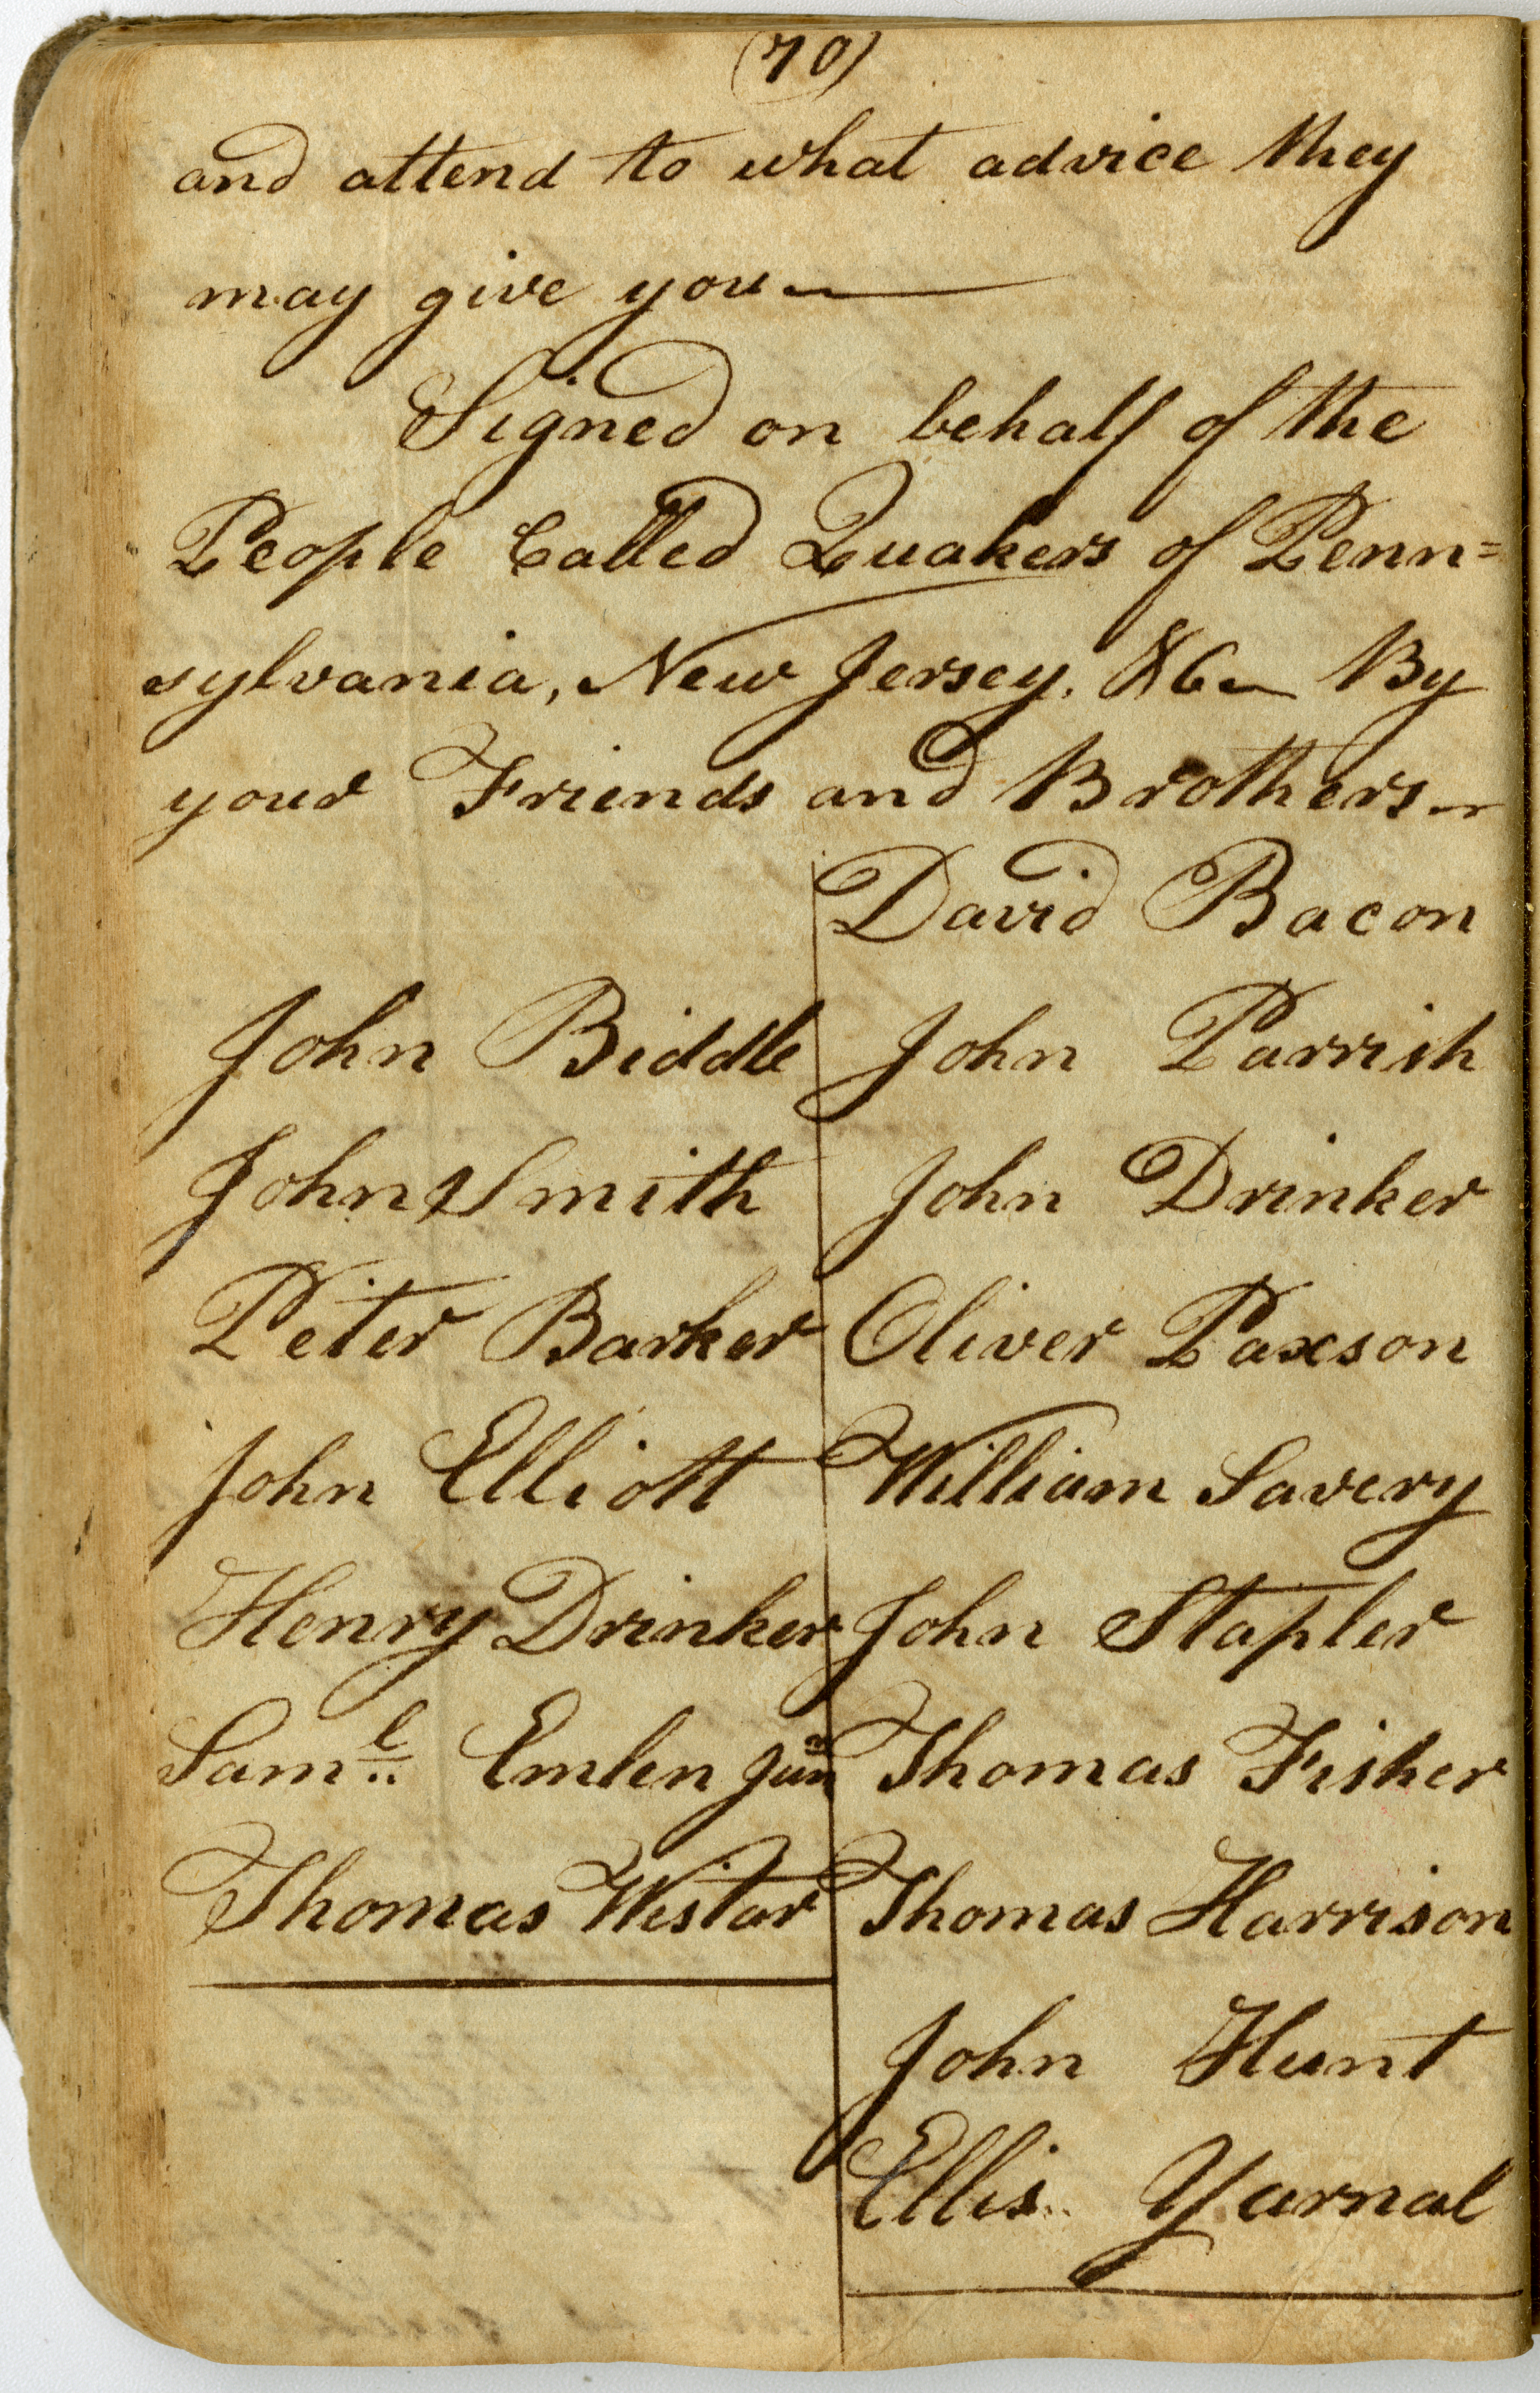 (70)
and attend to what advice they
may give you —
Signed on behalf of the
People Called Quakers of Penn=
sylvania, New Jersey, &C — By
your Friends and Brothers —
David Bacon
John Biddle John Parrish
John Smith John Drinker
Peter Barker Oliver Paxson
John Elliott William Savery
Henry Drinker John Stapler
Saml. Emlen Junr Thomas Fisher
Thomas Wistar Thomas Harrison
John Hunt
Ellis Yarnal